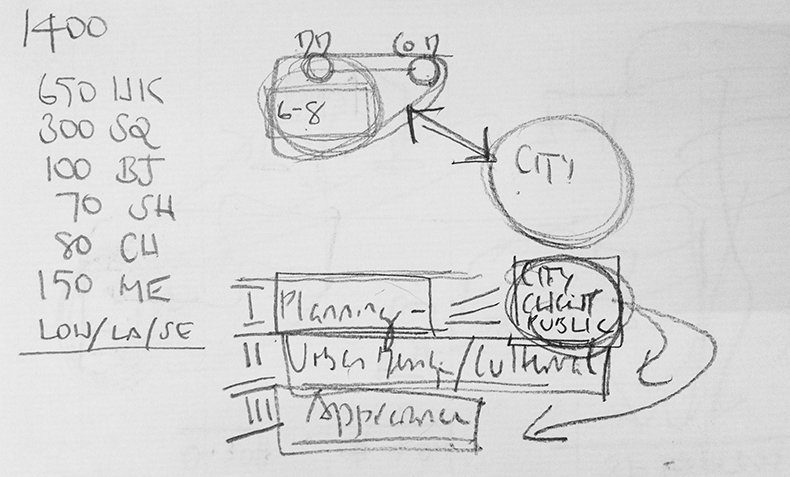 1400
650 HK
300 SG
100 BJ
70 SH
80 CH
150 ME
LON/LA/SE
6-8
CITY
I Planning -
CITY
CLIENT
PUBLIC
II Urban Design/Cultural
III Appearance